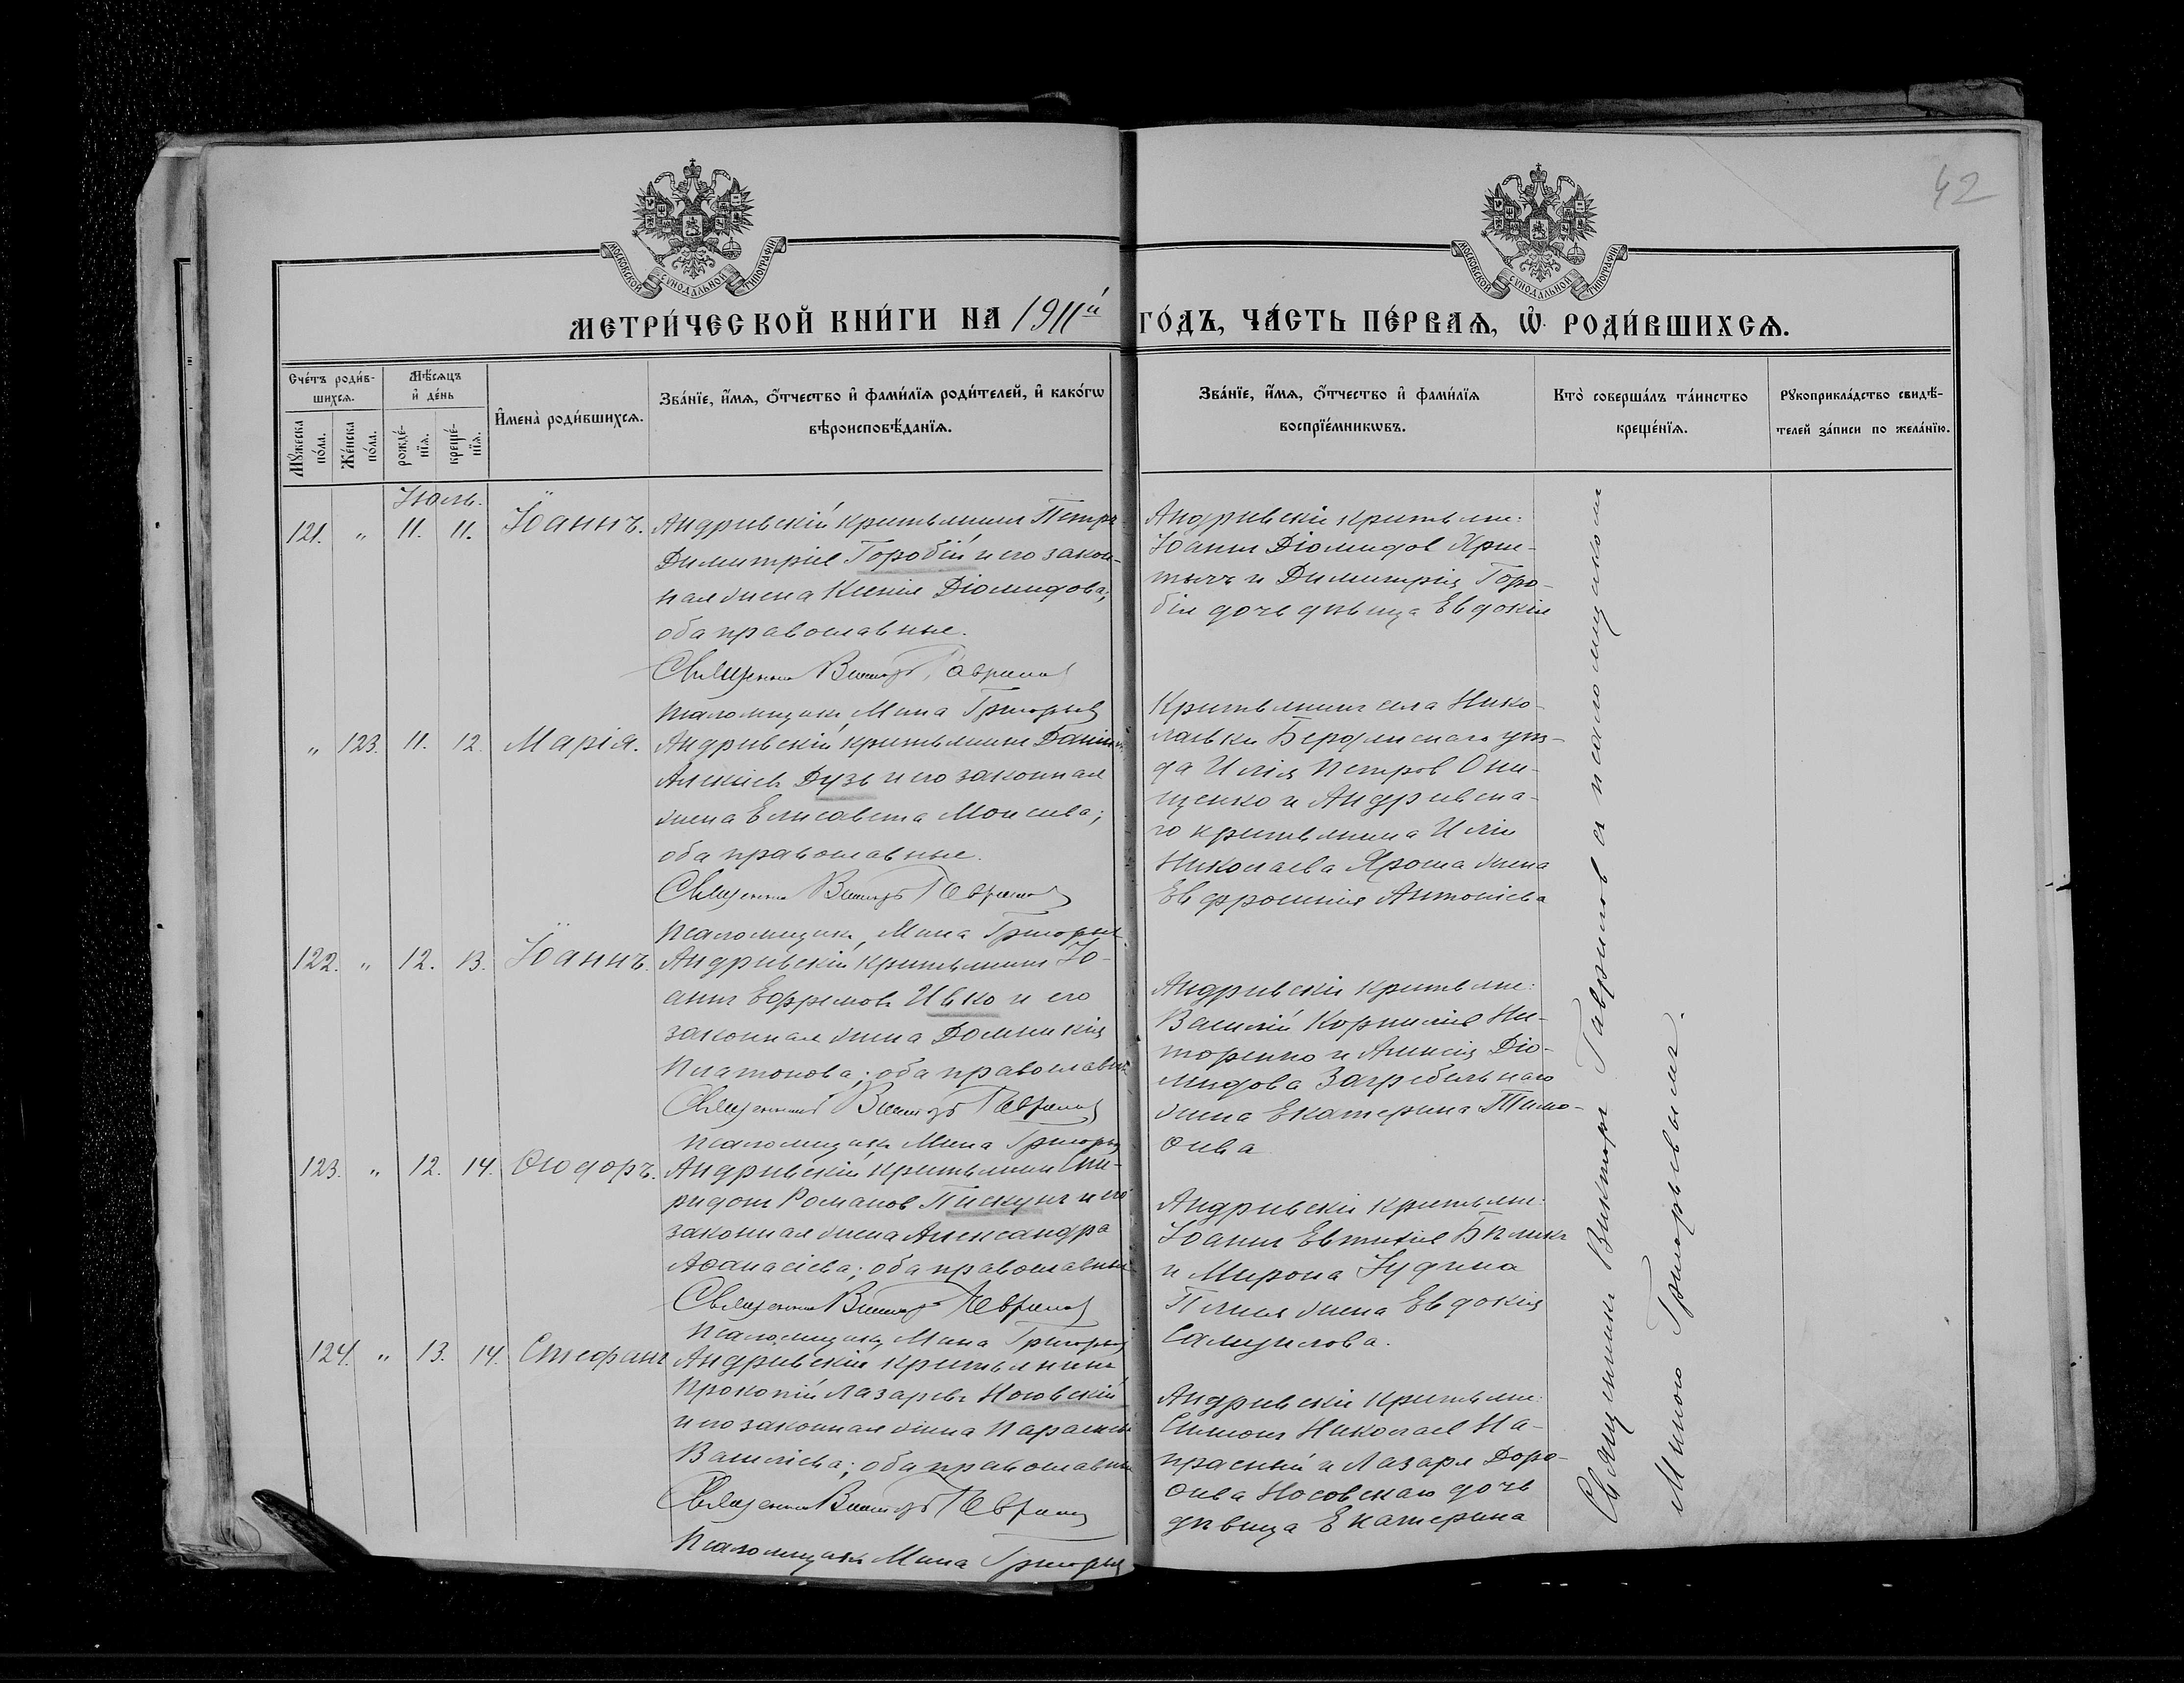 42
МОСКОВСКОЙ СѴНОДАЛЬНОЙ ТИПОГРАФІИ
МОСКОВСКОЙ СѴНОДАЛЬНОЙ ТИПОГРАФІИ
МЕТРИ́ЧЕСКОЙ КНИ́ГИ НА 1911й ГО́ДЪ, ЧА́СТЬ ПЕ́РВАѦ, Ѡ҆ РОДИ́ВШИХСѦ.
Сче́тъ роди́в-
шихсѧ.
Мꙋ́жеска по́ла.
Же́нска по́ла.
Мѣ́сѧцъ
и҆ де́нь
рожде́-
нїѧ.
креще́-
нїѧ.
И҆мена̀ роди́вшихсѧ.
Зва́нїе, и҆́мѧ, ѻ҆́тчество и҆ фами́лїѧ роди́телей, и҆ како́гѡ
вѣроисповѣ́данїѧ.
Зва́нїе, и҆́мѧ, ѻ҆́тчество и҆ фами́лїѧ
воспрїе́мникѡвъ.
Кто̀ соверша́лъ та́инство
креще́нїѧ.
Рꙋкоприкла́дство свидѣ́-
телей за́писи по жела́нїю.
Іюль.
121. " 11. 11. Іоаннъ. Андреевскій крестьянинъ Петръ
Димитріев Горобій и его закон-
ная жена Ксенія Діомидова;
оба православные.
Священникъ Викторъ Гаврилов
Псаломщикъ Мина Григорьев
Андреевскіе крестьяне:
Іоаннъ Діомидов
и Димитрія Горо-
бія дочь девица Евдокія
" 123. 11. 12. Марія. Андреевскій крестьянинъ Даніилъ
Алексіевъ Дузь и его законная
жена Елисавета Моисеева;
оба православные.
Священникъ Викторъ Гаврилов
Псаломщикъ Мина Григорьев
Крестьянинъ села Нико-
лаевки Бердянскаго уез-
да Илія Петров Они-
щенко и Андреевска-
го крестьянина Иліи
Николаева Яроша жена
Евфросинія Антоніева
122. " 12. 13. Іоаннъ. Андреевскій крестьянинъ Іо-
аннъ Ефремовъ Ивко и его
законная жена Домникія
Платонова; оба православные
Священникъ Викторъ Гаврилов
Псаломщикъ Мина Григорьев
Андреевскіе крестьяне:
Василій Корниліев Не-
торенко и Алексія Діо-
мидова Загребельнаго
жена Екатерина Тимо-
ѳеева
123. " 12. 14. Ѳеодоръ. Андреевскій крестьянинъ Спи-
ридонъ Романов Пискунъ и его
законная жена Александра
Аѳанасіева; оба православные
Священникъ Викторъ Гаврилов
Псаломщикъ Мина Григорьев
Андреевскіе крестьяне:
Іоаннъ Евтихіев
и Мирона Іудина
жена Евдокія
Самуилова.
124. " 13. 14. Стефанъ Андреевскій крестьянинъ
Прокопій Лазаревъ Носовскій
и его законная жена Параскева
Василіева; оба православные
Священникъ Викторъ Гаврилов
Псаломщикъ Мина Григорьев
Андреевскіе крестьяне:
Симеонъ Николаев На-
прасный и Лазаря Доро-
ѳеева Носовскаго дочь
девица Екатерина
Священникъ Викторъ Гаврилов с псаломщикомъ
Миною Григорьевымъ.